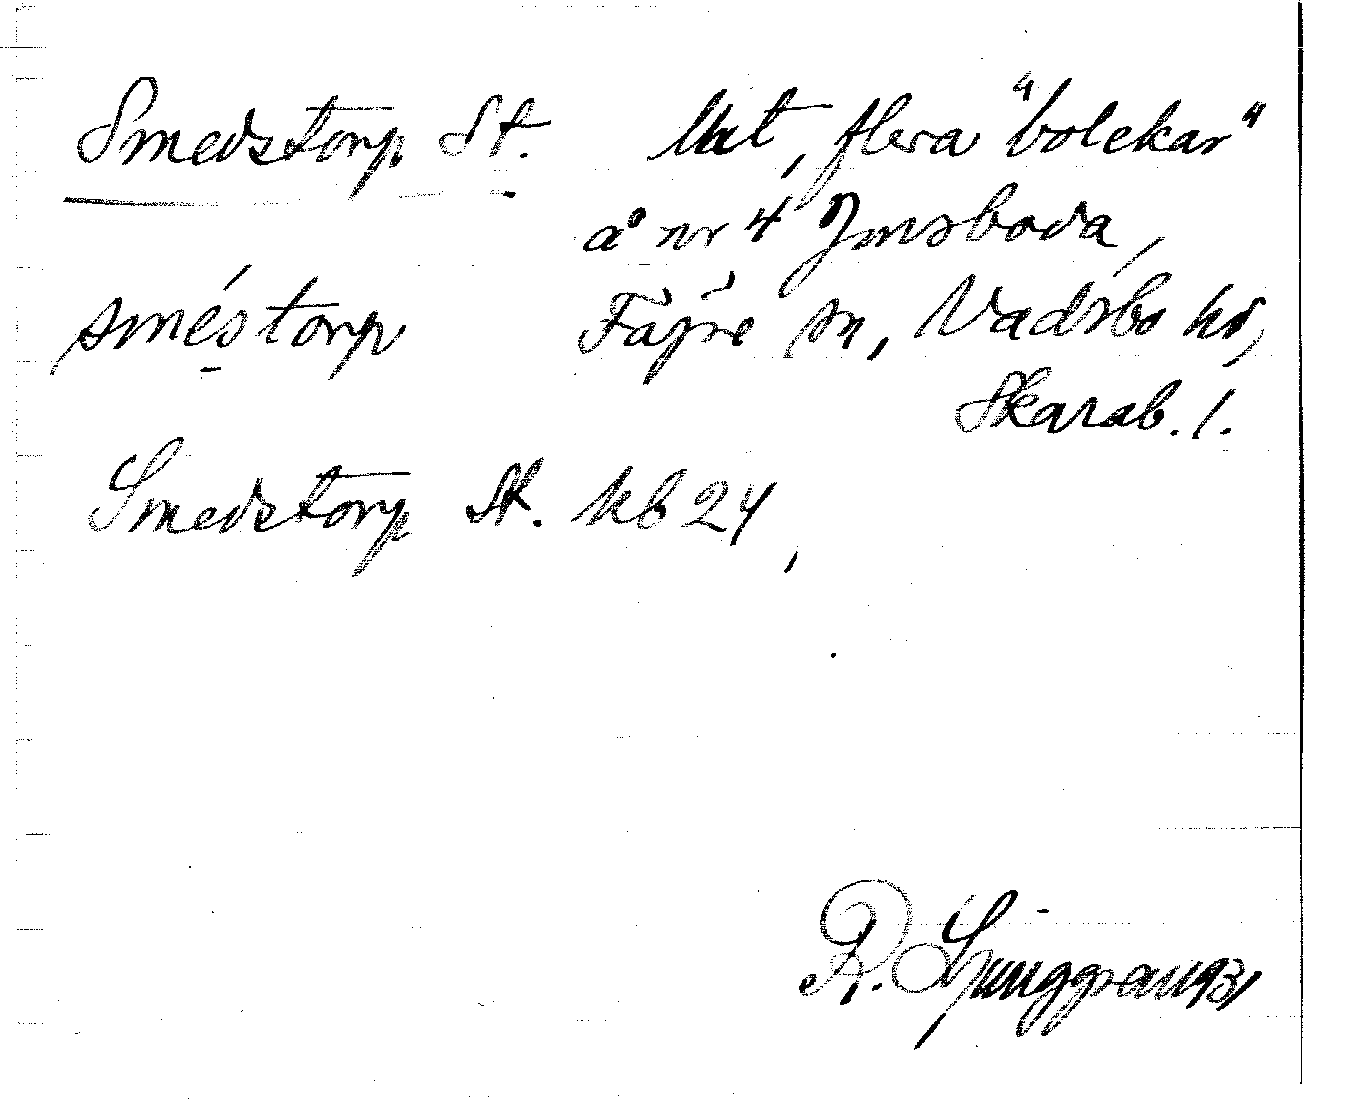 Smedstorp St. Utt, flera "bolekar"
å nr 4 Jonsboda,
sméstorp Fägre sn, Vadsbo hd,
Skarab. l.
Smedstorp St. kb 24,
R. Ljunggren 1931